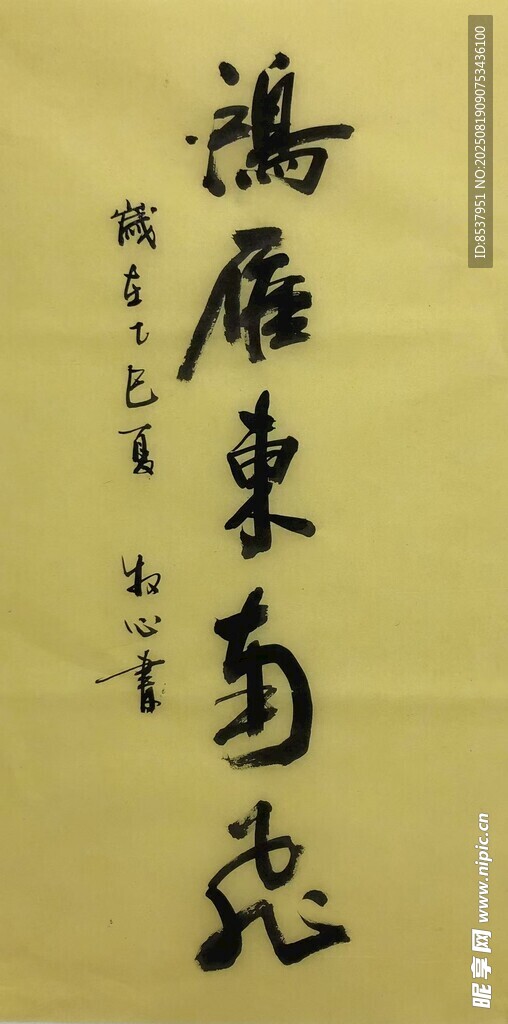 鴻雁東南飛
歲在乙巳夏 牧心書
ID:8537951 NO:20250819090753436100
昵享网 www.nipic.cn